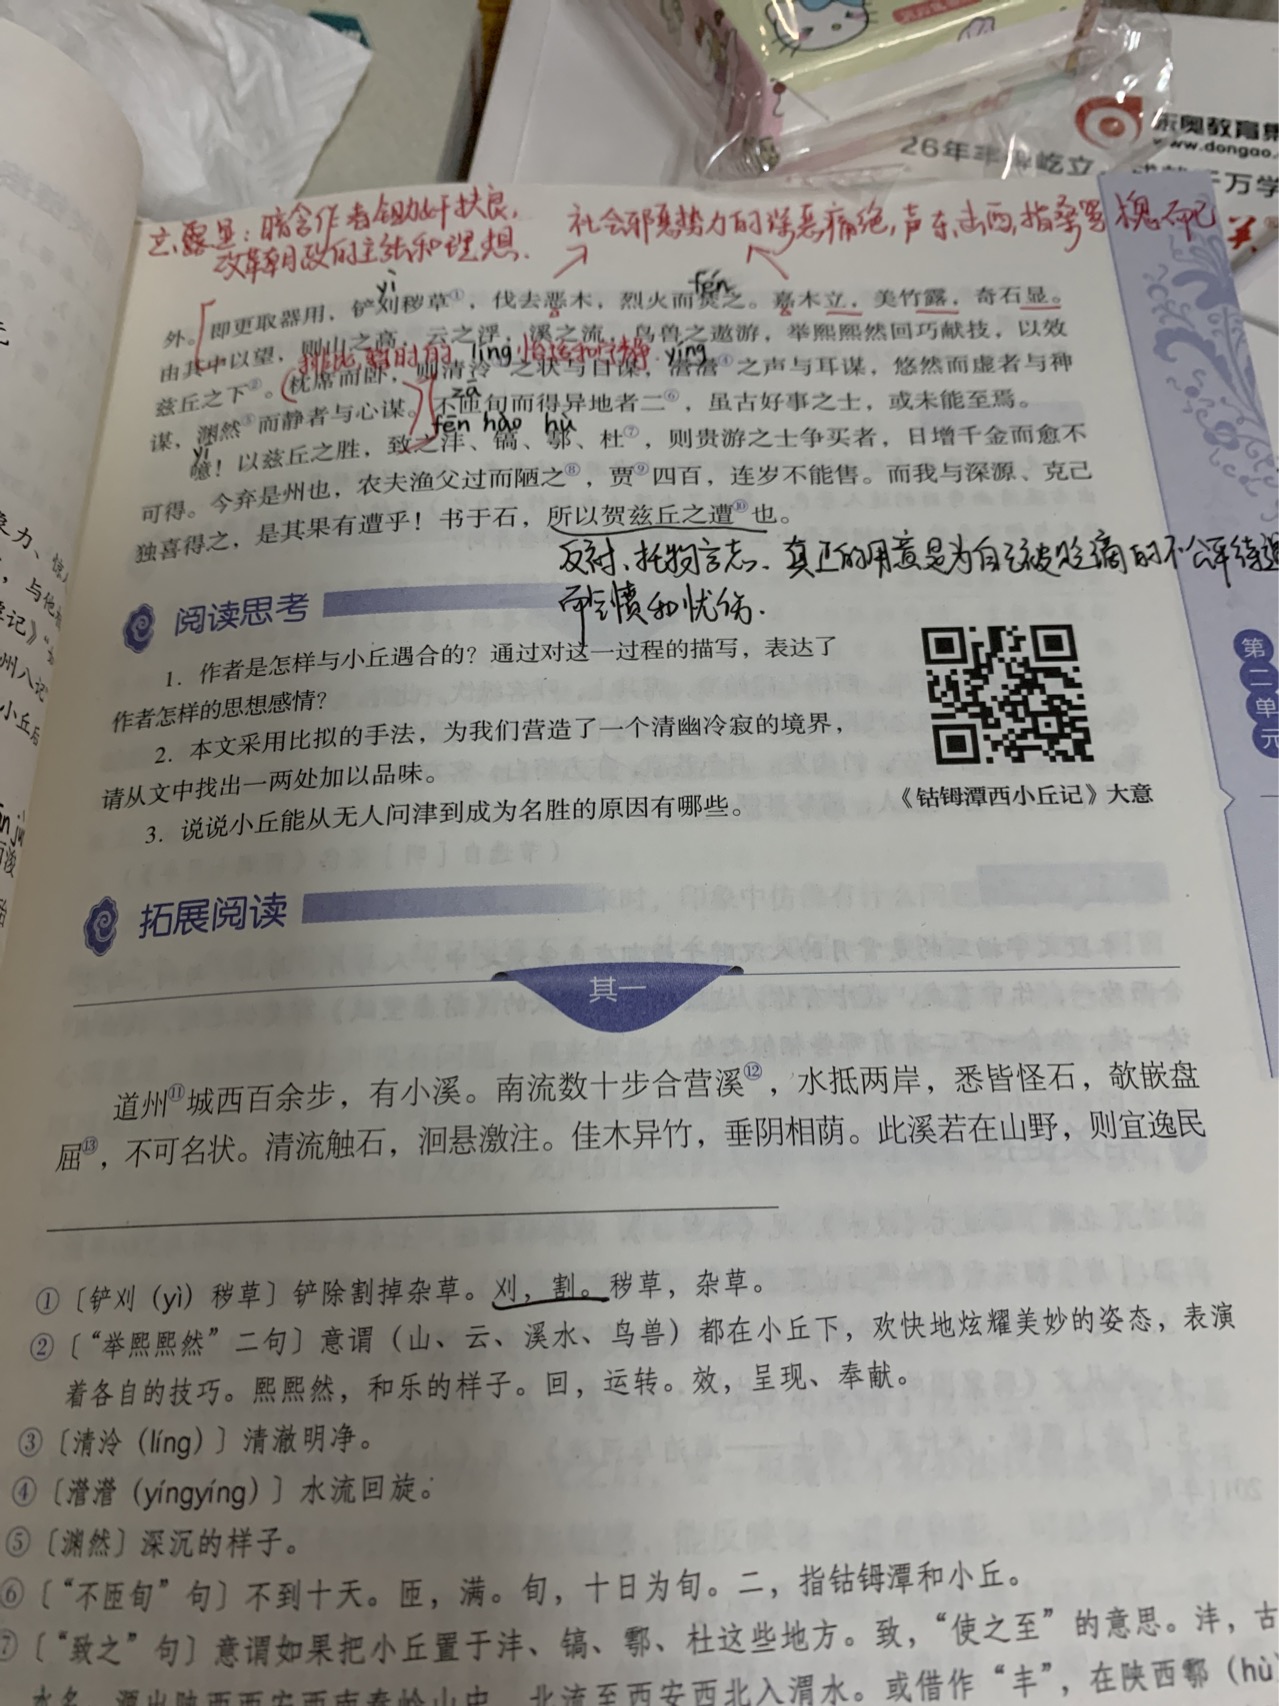 东奥教育集
www.dongao.
26年
千万学
立、露、显：暗含作者锄奸扶良，
改革朝政的主张和理想.
社会邪恶势力的深恶痛绝，声东击西，指桑骂槐而已
yì
fén
外。即更取器用，铲刈秽草①，伐去恶木，烈火而焚之。嘉木立，美竹露，奇石显。
由其中以望，则山之高，云之浮，溪之流，鸟兽之遨游，举熙熙然回巧献技，以效
líng
yíng
兹丘之下②。枕席而卧，则清泠③之状与目谋，瀯瀯④之声与耳谋，悠然而虚者与神
zā
谋，渊然⑤而静者与心谋。不匝旬而得异地者二⑥，虽古好事之士，或未能至焉。
yī
fēng hào hù
噫！以兹丘之胜，致之沣、镐、鄠、杜⑦，则贵游之士争买者，日增千金而愈不
可得。今弃是州也，农夫渔父过而陋之⑧，贾⑨四百，连岁不能售。而我与深源、克己
独喜得之，是其果有遭乎！书于石，所以贺兹丘之遭⑩也。
反衬、托物言志、真正的用意是为自己被贬谪的不公平待遇
而气愤和忧伤.
阅读思考
1. 作者是怎样与小丘遇合的？通过对这一过程的描写，表达了
作者怎样的思想感情？
2. 本文采用比拟的手法，为我们营造了一个清幽冷寂的境界，
请从文中找出一两处加以品味。
3. 说说小丘能从无人问津到成为名胜的原因有哪些。
《钴鉧潭西小丘记》大意
第二单元
拓展阅读
其一
道州⑪城西百余步，有小溪。南流数十步合营溪⑫，水抵两岸，悉皆怪石，欹嵌盘
屈⑬，不可名状。清流触石，洄悬激注。佳木异竹，垂阴相荫。此溪若在山野，则宜逸民
①〔铲刈（yì）秽草〕铲除割掉杂草。刈，割。秽草，杂草。
②〔“举熙熙然”二句〕意谓（山、云、溪水、鸟兽）都在小丘下，欢快地炫耀美妙的姿态，表演
着各自的技巧。熙熙然，和乐的样子。回，运转。效，呈现、奉献。
③〔清泠（líng）〕清澈明净。
④〔瀯瀯（yíngyíng）〕水流回旋。
⑤〔渊然〕深沉的样子。
⑥〔“不匝旬”句〕不到十天。匝，满。旬，十日为旬。二，指钴鉧潭和小丘。
⑦〔“致之”句〕意谓如果把小丘置于沣、镐、鄠、杜这些地方。致，“使之至”的意思。沣，古
水名，源出陕西西安西南秦岭山中，北流至西安西北入渭水。或借作“丰”，在陕西鄠（hù